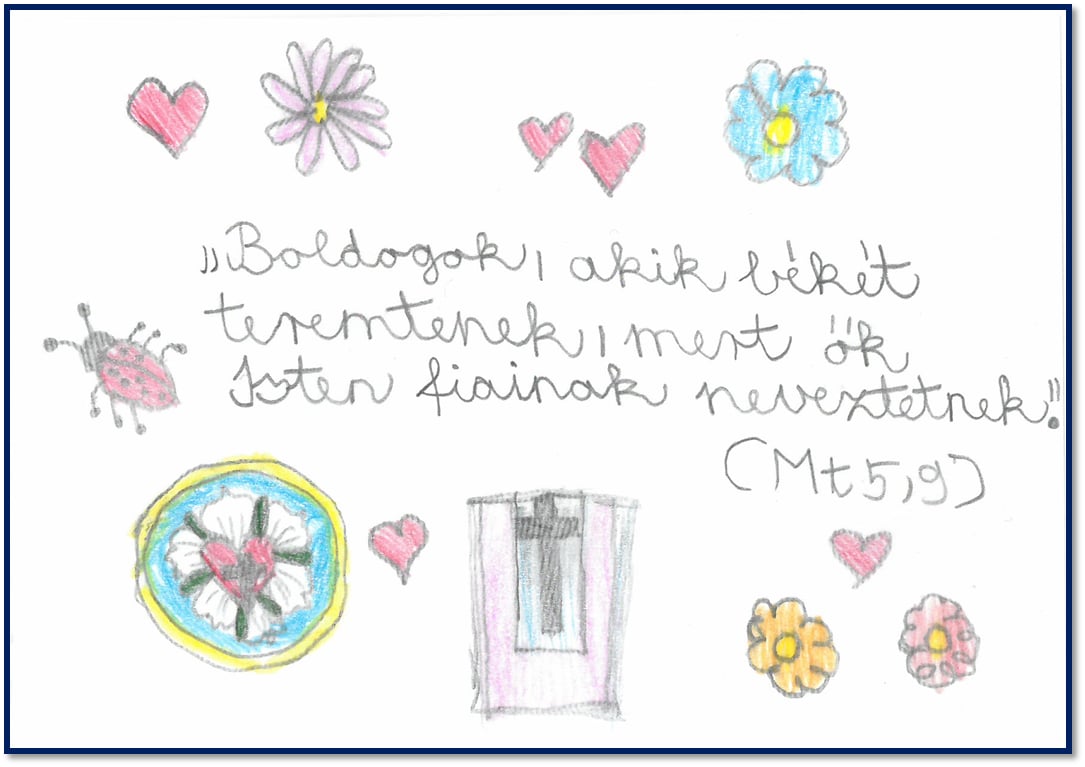 „Boldogok, akik békét
teremtenek, mert ők
Isten fiainak neveztetnek!"
(Mt 5,9)